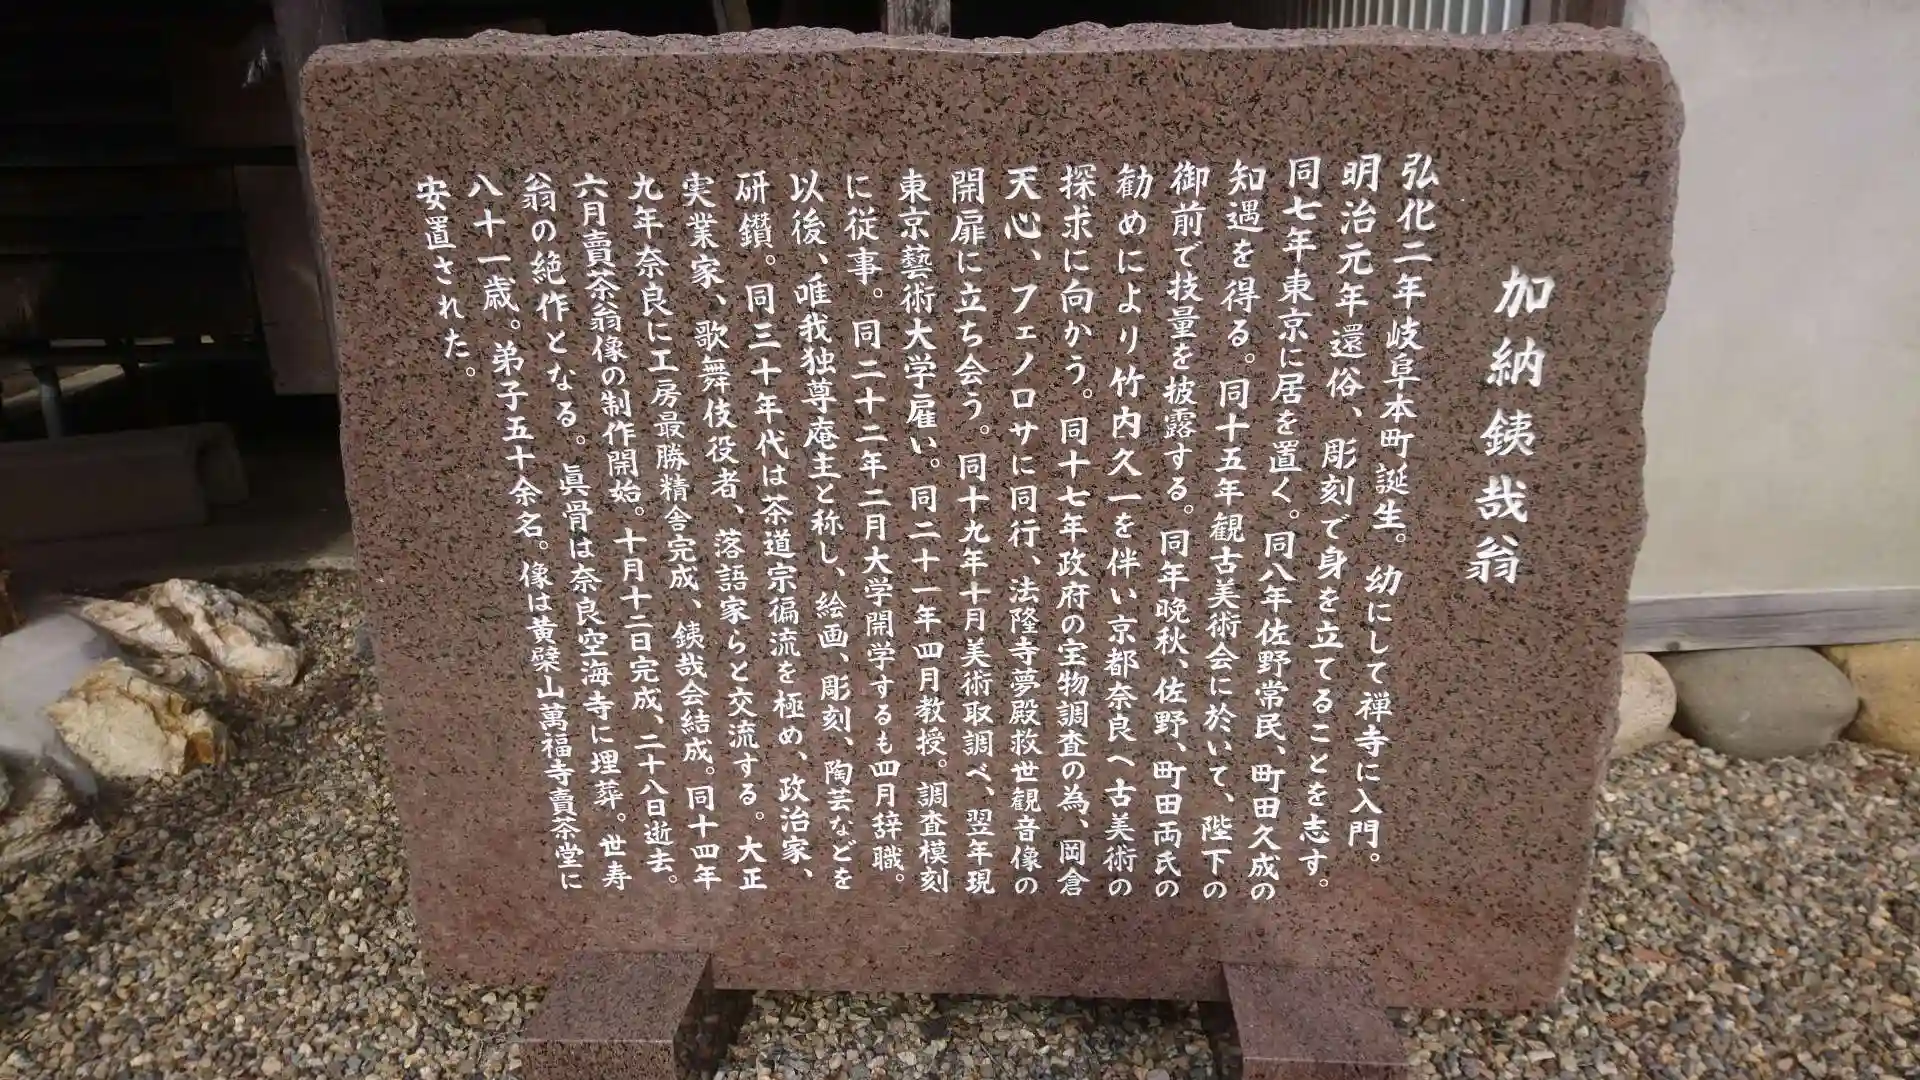 加納銕哉翁
弘化二年岐阜本町誕生。幼にして禅寺に入門。
明治元年還俗、彫刻で身を立てることを志す。
同七年東京に居を置く。同八年佐野常民、町田久成の
知遇を得る。同十五年観古美術会に於いて、陛下の
御前で技量を披露する。同年晩秋、佐野、町田両氏の
勧めにより竹内久一を伴い京都奈良へ古美術の
探求に向かう。同十七年政府の宝物調査の為、岡倉
天心、フェノロサに同行、法隆寺夢殿救世観音像の
開扉に立ち会う。同十九年十月美術取調べ、翌年現
東京藝術大学雇い。同二十一年四月教授。調査模刻
に従事。同二十二年二月大学開学するも四月辞職。
以後、唯我独尊庵主と称し、絵画、彫刻、陶芸などを
研鑚。同三十年代は茶道宗徧流を極め、政治家、
実業家、歌舞伎役者、落語家らと交流する。大正
九年奈良に工房最勝精舎完成、銕哉会結成。同十四年
六月賣茶翁像の制作開始。十月十二日完成、二十八日逝去。
翁の絶作となる。眞骨は奈良空海寺に埋葬。世寿
八十一歳。弟子五十余名。像は黄檗山萬福寺賣茶堂に
安置された。